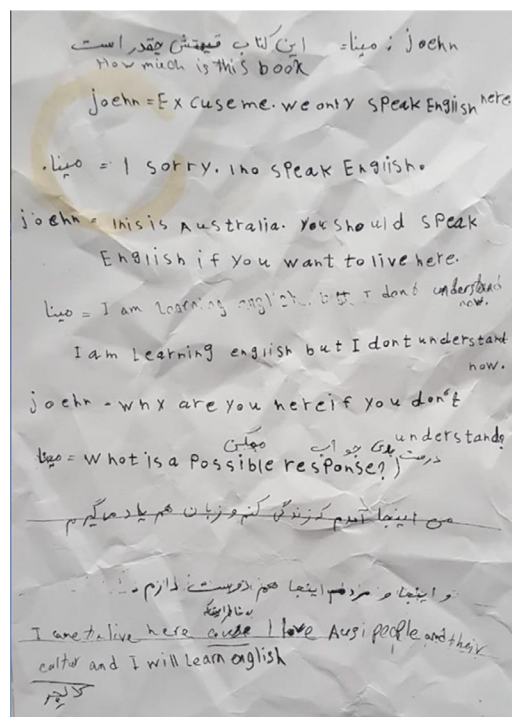 joehn ; مینا= این کتاب قیمتش چقدر است
How much is this book
joehn = Excuse me. we only speak English here
مینا = I sorry. I no speak English.
joehn = This is Australia. You should speak
English if you want to live here.
مینا = I am learning english but I dont understand
now.
I am learning english but I dont understand
now.
joehn - why are you here if you don't
understand?
مینا = What is a possible response?
ممکن جواب درست
من اینجا آمدم که زندگی کنم و زبان هم یاد میگیرم
و اینجا و مردم اینجا هم دوست دارم.
بخاطر اینکه
I come to live here cause I love Ausi people and their
caltur and I will learn english
کالچر